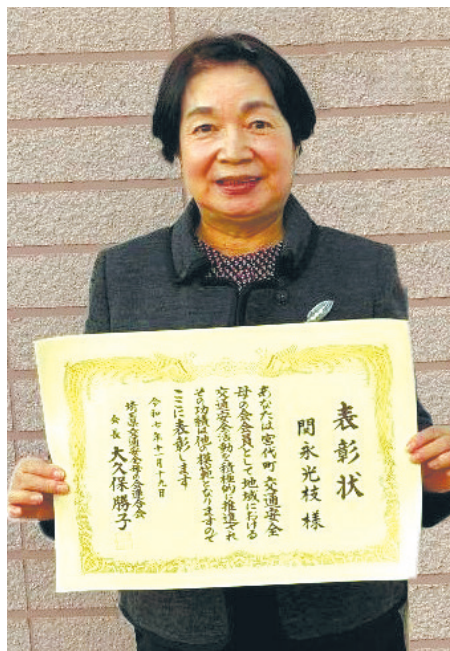 表彰状
間永光枝 様
あなたは宮代町交通安全
母の会会員として地域における
交通安全活動を積極的に推進され
その功績は他の模範となりますので
ここに表彰します
令和七年十一月十九日
埼玉県交通安全母の会連合会
会長 大久保勝子